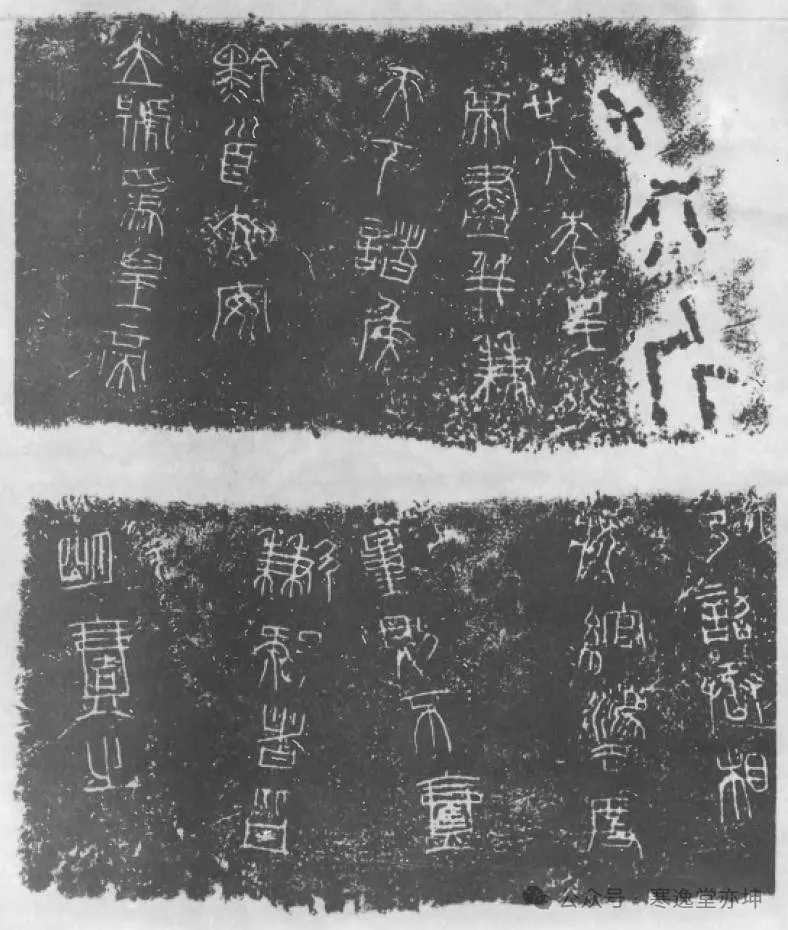 十六斤
廿六年皇
帝盡并兼
天下諸侯
黔首大安
立號為皇帝
乃詔丞相
狀綰灋度
量則不壹
歉疑者皆
明壹之
公众号·寒逸堂亦坤